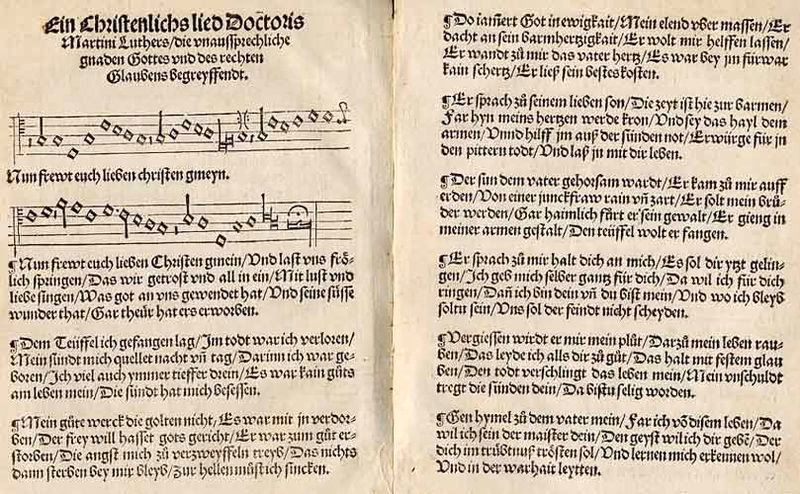 Ein Christenlichs lied Doctoris
Martini Luthers/die vnaussprechliche
gnaden Gottes vnd des rechten
Glaubens begreyffendt.
Nun frewt euch lieben christen gmeyn.
¶Nun frewt euch lieben Christen gmein/Vnd last vns frö-
lich springen/Das wir getrost vnd all in ein/Mit lust vnd
liebe singen/Was got an vns gewendet hat/Vnd seine süsse
wunder that/Gar theür hat ers erworben.
¶Dem Teüffel ich gefangen lag/Im todt war ich verloren/
Mein sündt mich quellet nacht vñ tag/Darinn ich war ge-
boren/Ich viel auch ymmer tieffer drein/Es war kain güts
am leben mein/Die sündt hat mich besessen.
¶Mein güte werck die golten nicht/Es war mit jn verdor-
ben/Der frey will hasset gots gericht/Er war zum güt er-
storben/Die angst mich zu verzweyffeln treyb/Das nichts
dann sterben bey mir bleyb/Zur hellen müst ich sincken.
¶Do iamert Got in ewigkait/Mein elend vber massen/Er
dacht an sein barmhertzigkait/Er wolt mir helffen lassen/
Er wandt zů mir das vater hertz/Es war bey jm fürwar
kain schertz/Er ließ sein bestes kosten.
¶Er sprach zů seinem lieben son/Die zeyt ist hie zur barmen/
Far hyn meins hertzen werde kron/Vnd sey das hayl dem
armen/Vnnd hilff jm auß der sünden not/Erwürge für jn
den pittern todt/Vnd laß jn mit dir leben.
¶Der sun dem vater gehorsam wardt/Er kam zů mir auff
erden/Von einer junckfraw rain vñ zart/Er solt mein brů-
der werden/Gar haimlich fürt er sein gewalt/Er gieng in
meiner armen gestalt/Den teüffel wolt er fangen.
¶Er sprach zů mir halt dich an mich/Es sol dir ytzt gelin-
gen/Ich geb mich selber gantz für dich/Da wil ich für dich
ringen/Dañ ich bin dein vñ du bist mein/Vnd wo ich bleyb
soltu sein/Vns sol der feindt nicht scheyden.
¶Vergiessen wirdt er mir mein plůt/Darzů mein leben rau-
ben/Das leyde ich alls dir zů gůt/Das halt mit festem glau
ben/Den todt verschlingt das leben mein/Mein vnschuldt
tregt die sünden dein/Da bistu selig worden.
¶Gen hymel zů dem vater mein/Far ich võ disem leben/Da
wil ich sein der maister dein/Den geyst wil ich dir gebẽ/Der
dich im trübtnuß trösten sol/Vnd lernen mich erkennen wol/
Vnd in der warhait leytten.